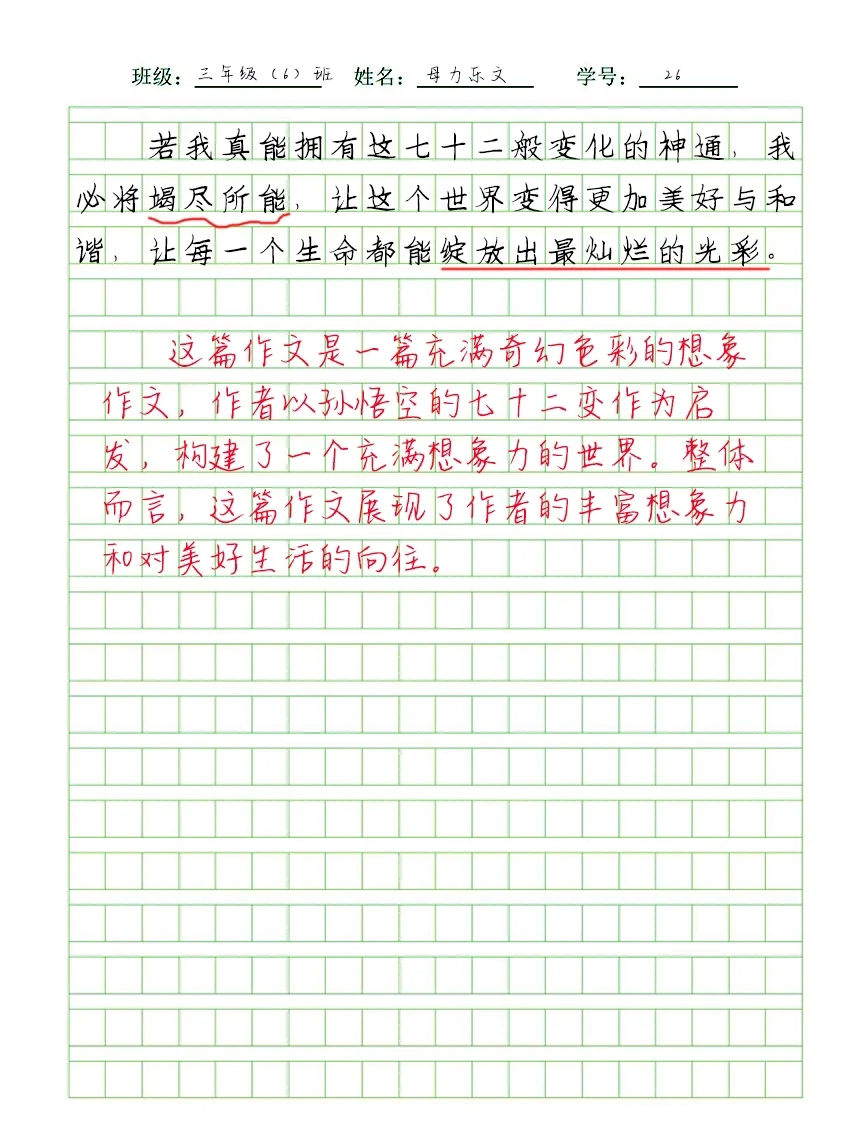 班级：三年级（6）班 姓名：母力乐文 学号：26
若我真能拥有这七十二般变化的神通，我
必将竭尽所能，让这个世界变得更加美好与和
谐，让每一个生命都能绽放出最灿烂的光彩。
这篇作文是一篇充满奇幻色彩的想象
作文，作者以孙悟空的七十二变作为启
发，构建了一个充满想象力的世界。整体
而言，这篇作文展现了作者的丰富想象力
和对美好生活的向往。